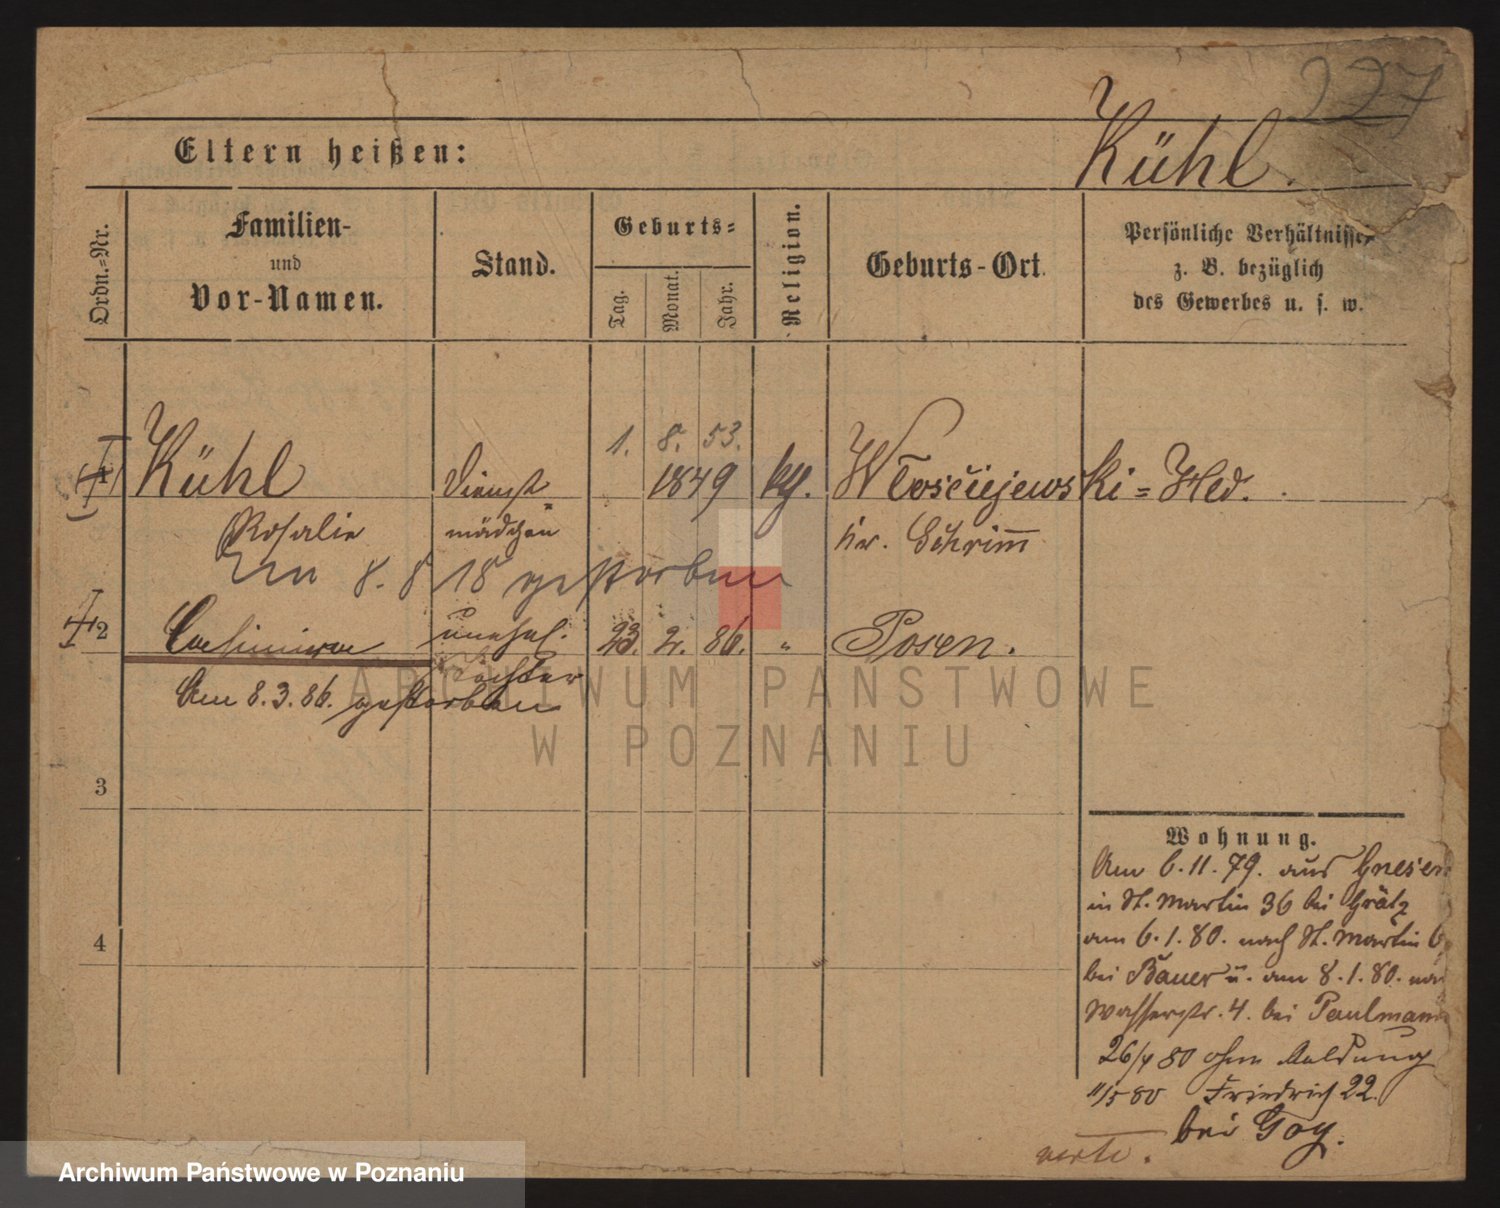 227
Kühl.
Eltern heißen:
Ordn.-Nr.
Familien-
und
Vor-Namen.
Stand.
Geburts-
Tag.
Monat.
Jahr.
Religion.
Geburts-Ort.
Persönliche Verhältnisse,
z. B. bezüglich
des Gewerbes u. s. w.
1. 8. 53.
1 Kühl Dienst- 1849 kth. Włościejewski-Hld.
Rosalie mädchen kr. Schrimm
Am 8. 8 18 gestorben
2 Casimira unehel. 23. 2. 86. " Posen.
Tochter
Am 8. 3. 86. gestorben
3
4
Wohnung.
Am 6. 11. 79. aus Gnesen
in St. Martin 36 bei Grätz
am 6. 1. 80. nach St. Martin 6
bei Bauer u. am 8. 1. 80. nach
Wasserstr. 4. bei Paulmann
26/4 80 ohne Meldung
11/5 80 Friedrich 22.
bei Goy.
verte.
ARCHIWUM PAŃSTWOWE
W POZNANIU
Archiwum Państwowe w Poznaniu